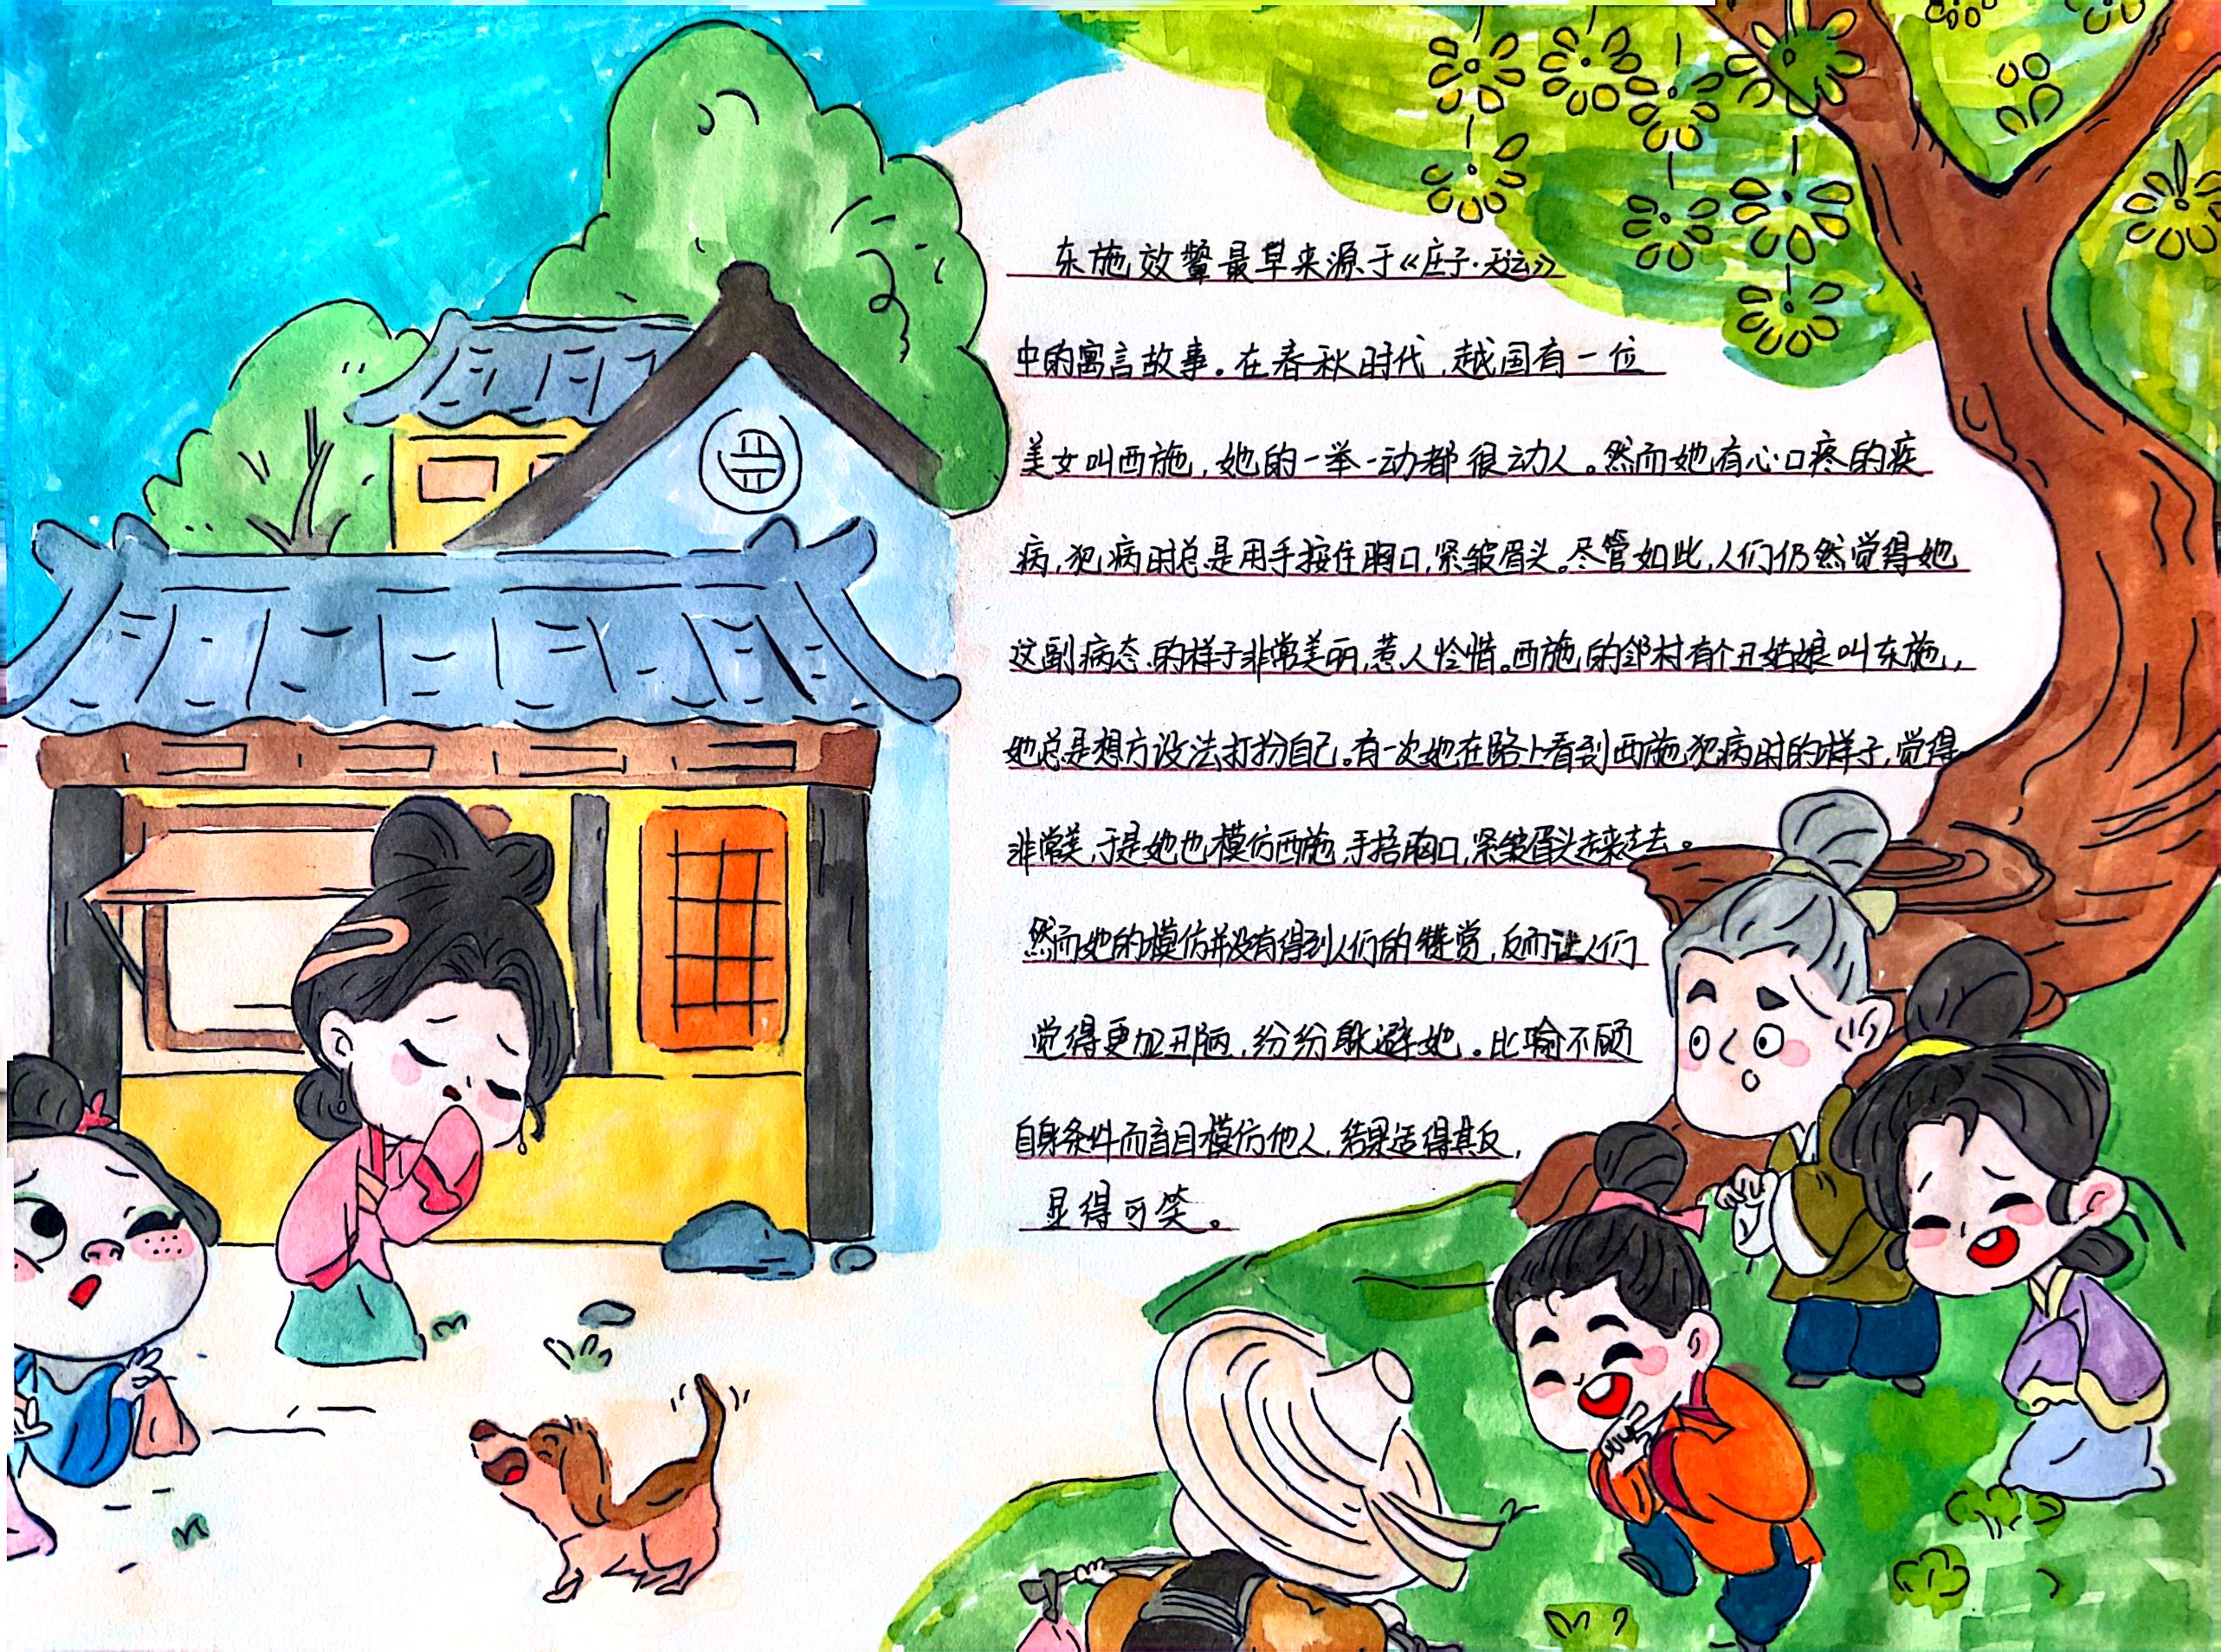 东施效颦最早来源于《庄子·天运》
中的寓言故事。在春秋时代,越国有一位
美女叫西施,她的一举一动都很动人。然而她有心口疼的疾
病,犯病时总是用手按住胸口,紧皱眉头。尽管如此,人们仍然觉得她
这副病态的样子非常美丽,惹人怜惜。西施的邻村有个丑姑娘叫东施,
她总是想方设法打扮自己。有一次她在路上看到西施犯病时的样子,觉得
非常美,于是她也模仿西施,手捂胸口,紧皱眉头走来走去。
然而她的模仿并没有得到人们的赞赏,反而让人们
觉得更加丑陋,纷纷躲避她。比喻不顾
自身条件而盲目模仿他人,结果适得其反,
显得可笑。